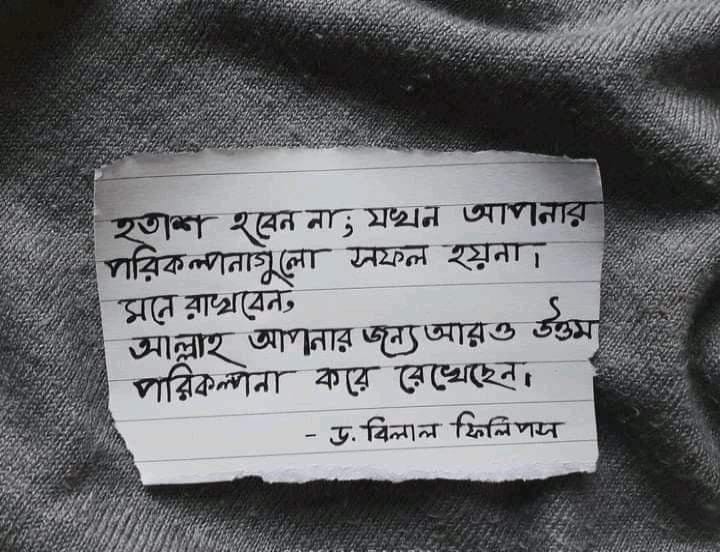 হতাশ হবেন না; যখন আপনার
পরিকল্পনাগুলো সফল হয়না।
মনে রাখবেন,
আল্লাহ আপনার জন্য আরও উত্তম
পরিকল্পনা করে রেখেছেন।
- ড. বিলাল ফিলিপস